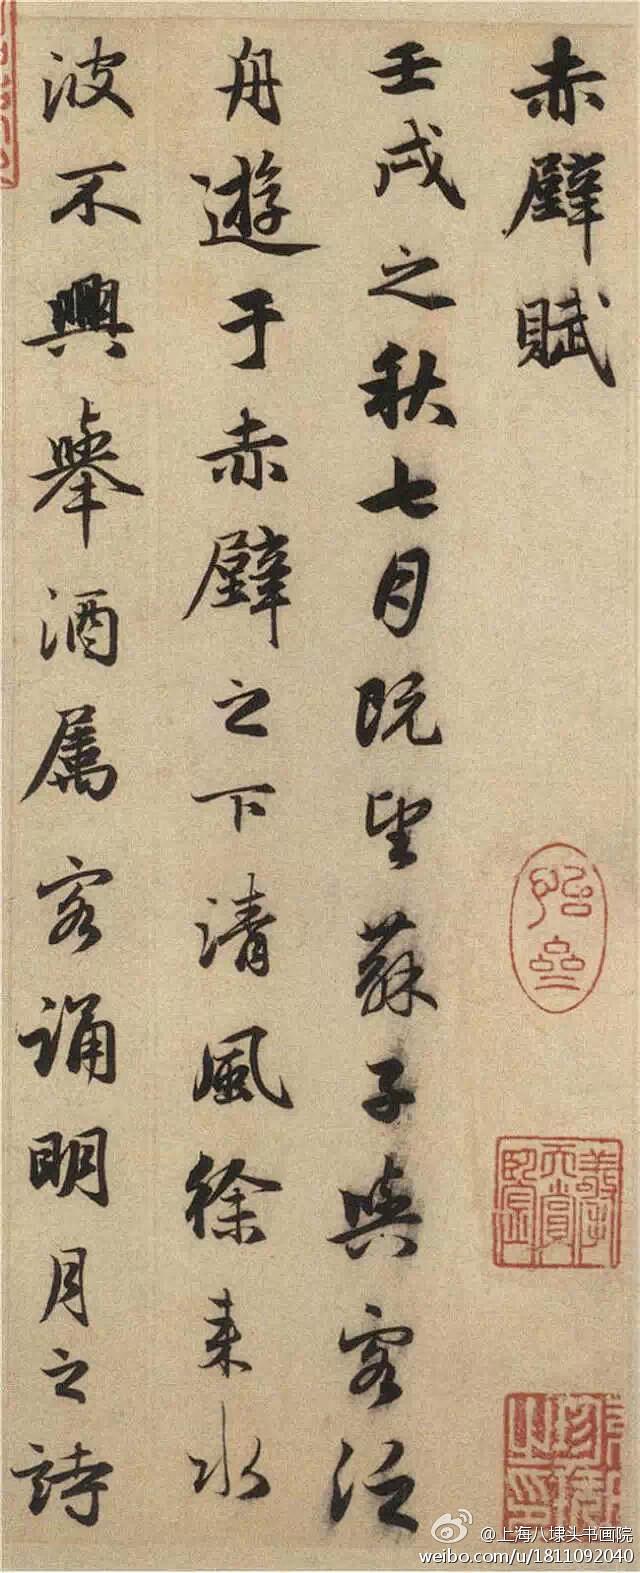 赤壁賦
壬戌之秋七月既望蘇子與客泛
舟遊于赤壁之下清風徐来水
波不興舉酒属客誦明月之詩
@上海八埭头书画院
weibo.com/u/1811092040